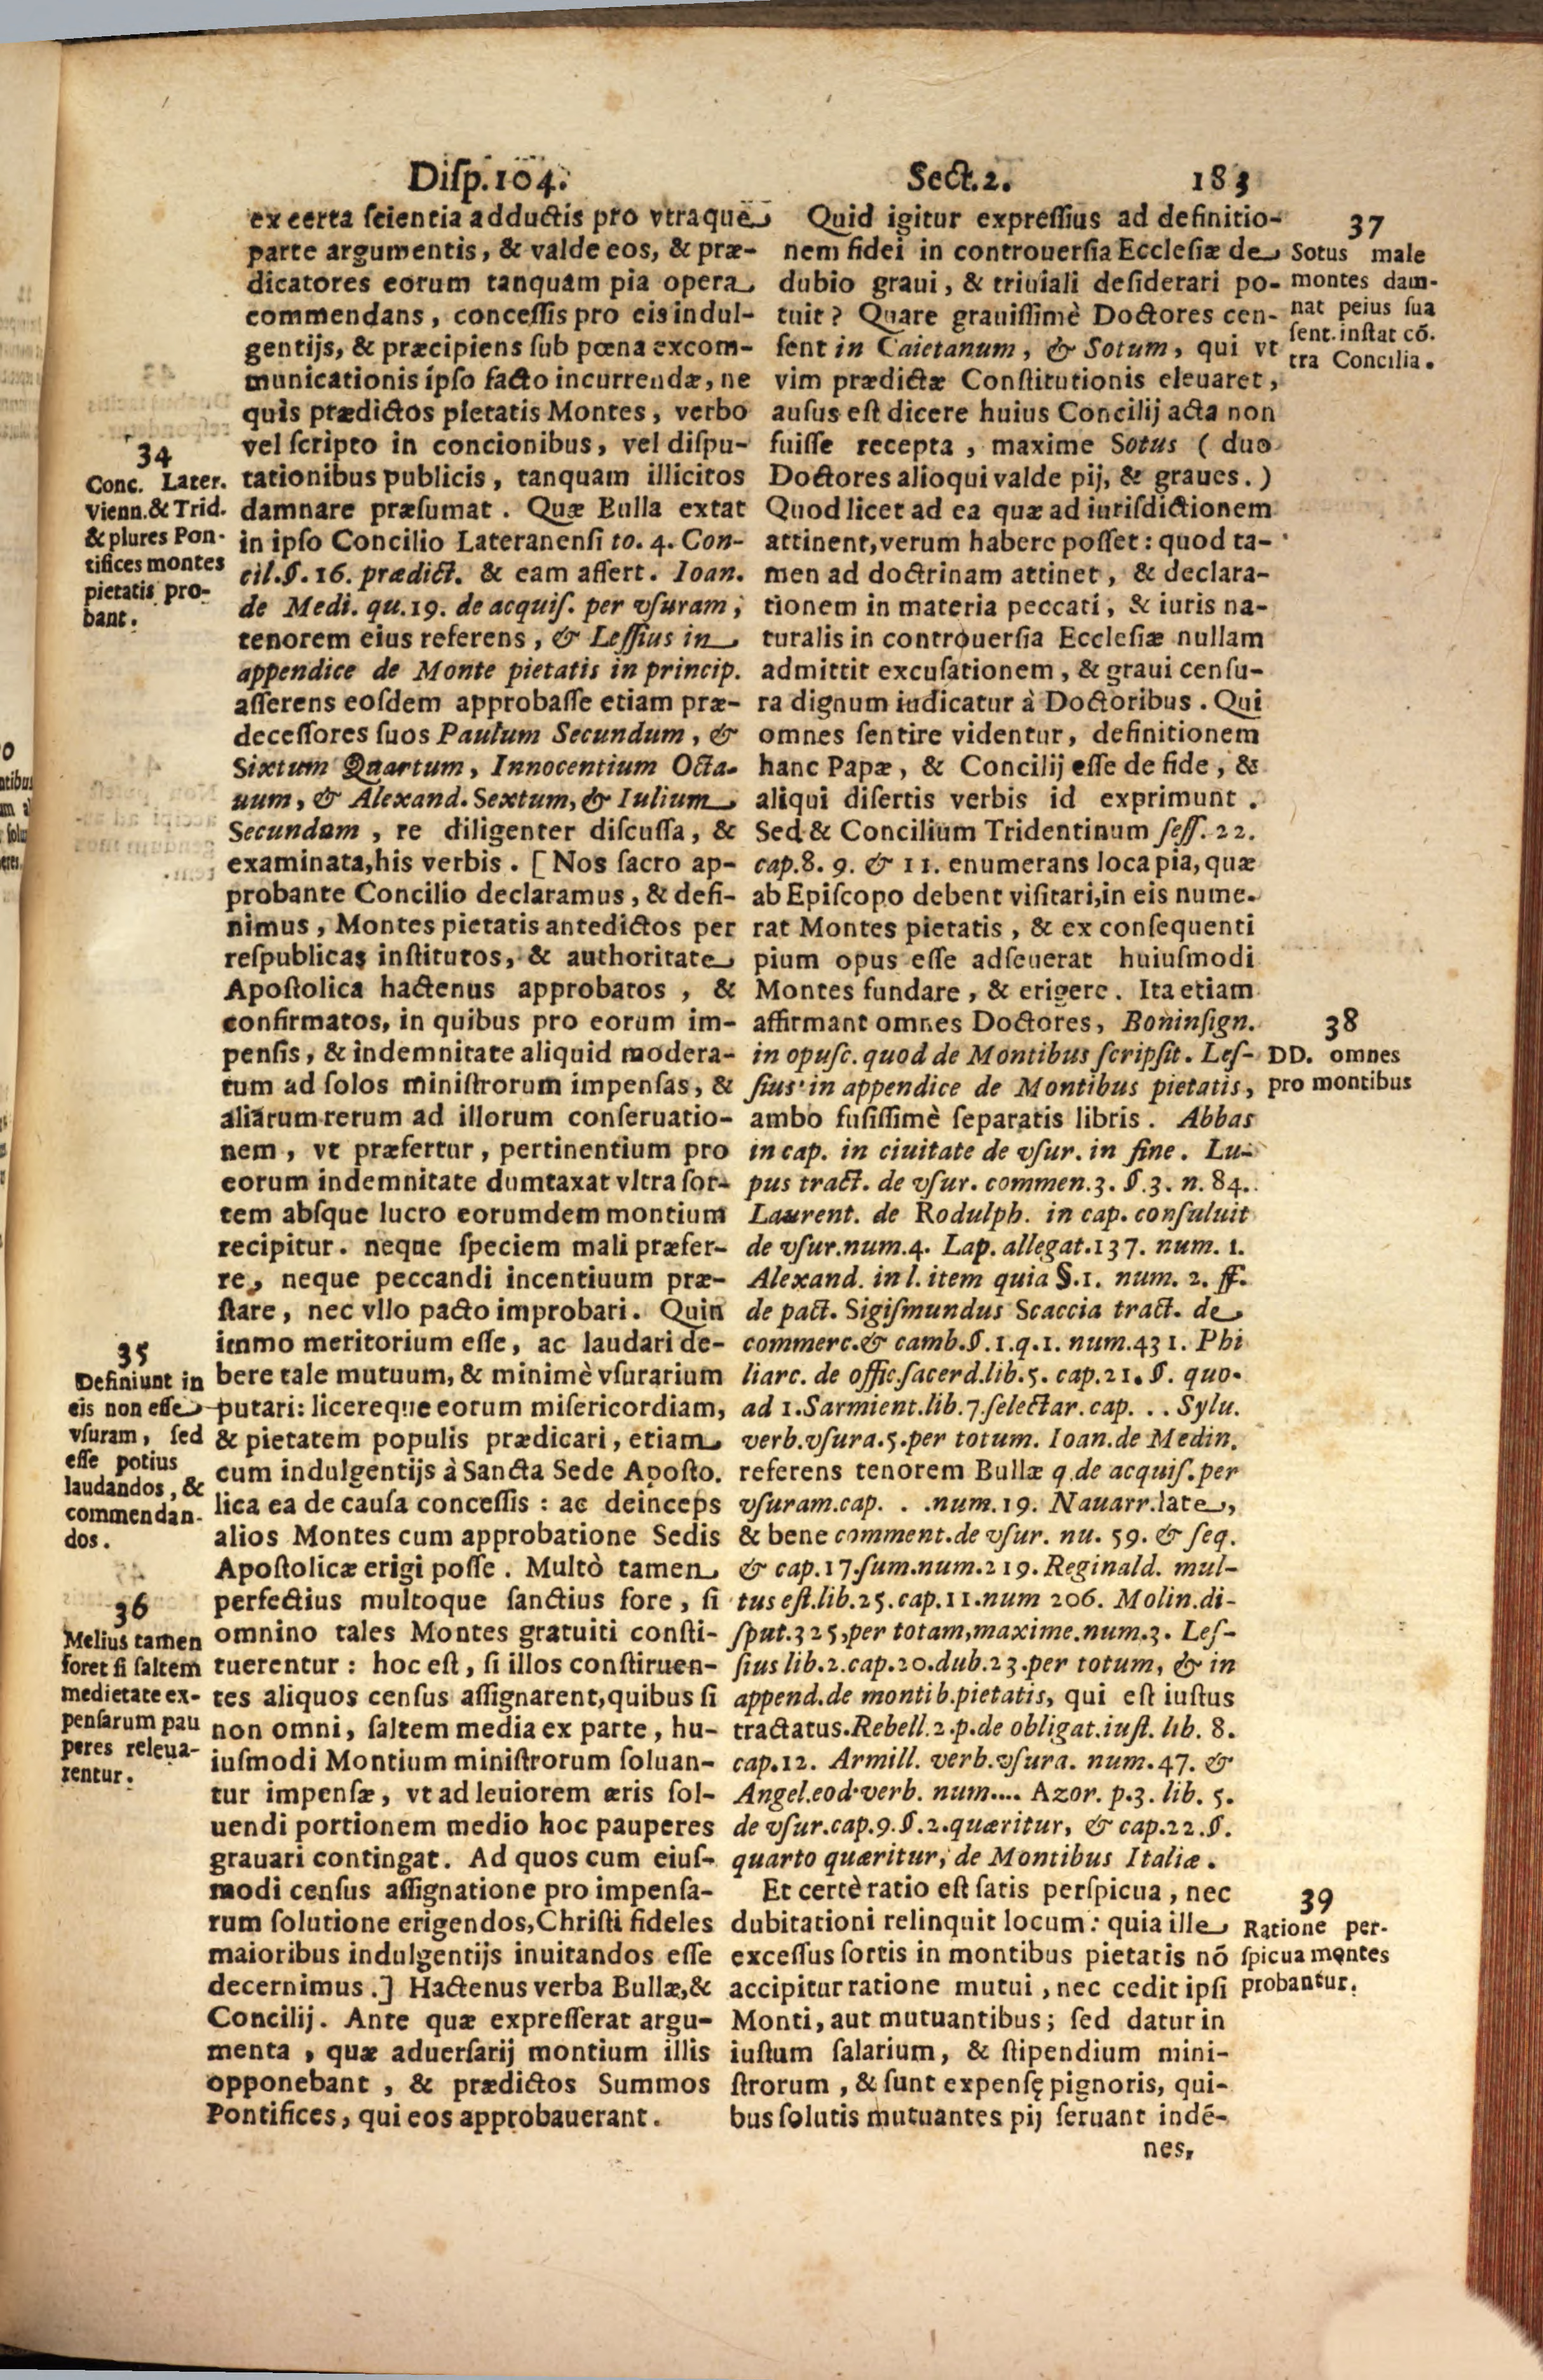 Disp.104. Sect.2. 183
ex certa scientia adductis pro vtraque
parte argumentis, & valde eos, & præ-
dicatores eorum tanquam pia opera
commendans, concessis pro eis indul-
gentijs, & præcipiens sub pœna excom-
municationis ipso facto incurrendæ, ne
quis prædictos pietatis Montes, verbo
vel scripto in concionibus, vel dispu-
tationibus publicis, tanquam illicitos
damnare præsumat. Quæ Bulla extat
in ipso Concilio Lateranensi to. 4. Con-
cil.§.16. prædict. & eam affert. Ioan.
de Medi. qu.19. de acquis. per vsuram,
tenorem eius referens, & Lessius in
appendice de Monte pietatis in princip.
asserens eosdem approbasse etiam præ-
decessores suos Paulum Secundum, &
Sixtum Quartum, Innocentium Octa-
uum, & Alexand. Sextum, & Iulium
Secundum, re diligenter discussa, &
examinata, his verbis. [Nos sacro ap-
probante Concilio declaramus, & defi-
nimus, Montes pietatis antedictos per
respublicas institutos, & authoritate
Apostolica hactenus approbatos, &
confirmatos, in quibus pro eorum im-
pensis, & indemnitate aliquid modera-
tum ad solos ministrorum impensas, &
aliarum rerum ad illorum conseruatio-
nem, vt præfertur, pertinentium pro
eorum indemnitate dumtaxat vltra sor-
tem absque lucro eorumdem montium
recipitur. neque speciem mali præfer-
re, neque peccandi incentiuum præ-
stare, nec vllo pacto improbari. Quin
immo meritorium esse, ac laudari de-
bere tale mutuum, & minimè vsurarium
putari: licereque eorum misericordiam,
& pietatem populis prædicari, etiam
cum indulgentijs à Sancta Sede Aposto.
lica ea de causa concessis: ac deinceps
alios Montes cum approbatione Sedis
Apostolicæ erigi posse. Multò tamen
perfectius multoque sanctius fore, si
omnino tales Montes gratuiti consti-
tuerentur: hoc est, si illos constituen-
tes aliquos census assignarent, quibus si
non omni, saltem media ex parte, hu-
iusmodi Montium ministrorum soluan-
tur impensæ, vt ad leuiorem æris sol-
uendi portionem medio hoc pauperes
grauari contingat. Ad quos cum eius-
modi census assignatione pro impensa-
rum solutione erigendos, Christi fideles
maioribus indulgentijs inuitandos esse
decernimus.] Hactenus verba Bullæ, &
Concilij. Ante quæ expresserat argu-
menta, quæ aduersarij montium illis
opponebant, & prædictos Summos
Pontifices, qui eos approbauerant.
34
Conc. Later.
Vienn.& Trid.
& plures Pon-
tifices montes
pietatis pro-
bant.
35
Definiunt in
eis non esse
vsuram, sed
esse potius
laudandos, &
commendan-
dos.
36
Melius tamen
foret si saltem
medietate ex-
pensarum pau
peres releua-
rentur.
Quid igitur expressius ad definitio-
nem fidei in controuersia Ecclesiæ de
dubio graui, & triuiali desiderari po-
tuit? Quare grauissimè Doctores cen-
sent in Caietanum, & Sotum, qui vt
vim prædictæ Constitutionis eleuaret,
ausus est dicere huius Concilij acta non
fuisse recepta, maxime Sotus (duo
Doctores alioqui valde pij, & graues.)
Quod licet ad ea quæ ad iurisdictionem
attinent, verum habere posset: quod ta-
men ad doctrinam attinet, & declara-
tionem in materia peccati, & iuris na-
turalis in controuersia Ecclesiæ nullam
admittit excusationem, & graui censu-
ra dignum iudicatur à Doctoribus. Qui
omnes sentire videntur, definitionem
hanc Papæ, & Concilij esse de fide, &
aliqui disertis verbis id exprimunt.
Sed & Concilium Tridentinum sess. 22.
cap.8. 9. & 11. enumerans loca pia, quæ
ab Episcopo debent visitari, in eis nume.
rat Montes pietatis, & ex consequenti
pium opus esse adseuerat huiusmodi
Montes fundare, & erigere. Ita etiam
affirmant omnes Doctores, Boninsign.
in opusc. quod de Montibus scripsit. Les-
sius in appendice de Montibus pietatis,
ambo fusissimè separatis libris. Abbas
in cap. in ciuitate de vsur. in fine. Lu-
pus tract. de vsur. commen.3. §.3. n. 84.
Laurent. de Rodulph. in cap. consuluit
de vsur.num.4. Lap. allegat.137. num. 1.
Alexand. in l. item quia §.1. num. 2. ff.
de pact. Sigismundus Scaccia tract. de
commerc.& camb.§.1.q.1. num.431. Phi
liarc. de offic.sacerd.lib.5. cap.21. §. quo.
ad 1.Sarmient.lib.7.selectar.cap. . . Sylu.
verb.vsura.5.per totum. Ioan.de Medin.
referens tenorem Bullæ q.de acquis.per
vsuram.cap. . .num.19. Nauarr.late,
& bene comment.de vsur. nu. 59. & seq.
& cap.17.sum.num.219.Reginald. mul-
tus est.lib.25.cap.11.num 206. Molin.di-
sput.325,per totam,maxime.num.3. Les-
sius lib.2.cap.20.dub.23.per totum, & in
append.de montib.pietatis, qui est iustus
tractatus.Rebell.2.p.de obligat.iust. lib. 8.
cap.12. Armill. verb.vsura. num.47. &
Angel.eod.verb. num.... Azor. p.3. lib. 5.
de vsur.cap.9.§.2.quæritur, & cap.22.§.
quarto quæritur, de Montibus Italiæ.
Et certè ratio est satis perspicua, nec
dubitationi relinquit locum: quia ille
excessus sortis in montibus pietatis nō
accipitur ratione mutui, nec cedit ipsi
Monti, aut mutuantibus; sed datur in
iustum salarium, & stipendium mini-
strorum, & sunt expensę pignoris, qui-
bus solutis mutuantes pij seruant indē-
nes,
37
Sotus male
montes dam-
nat peius sua
sent. instat cō.
tra Concilia.
38
DD. omnes
pro montibus
39
Ratione per-
spicua montes
probantur.